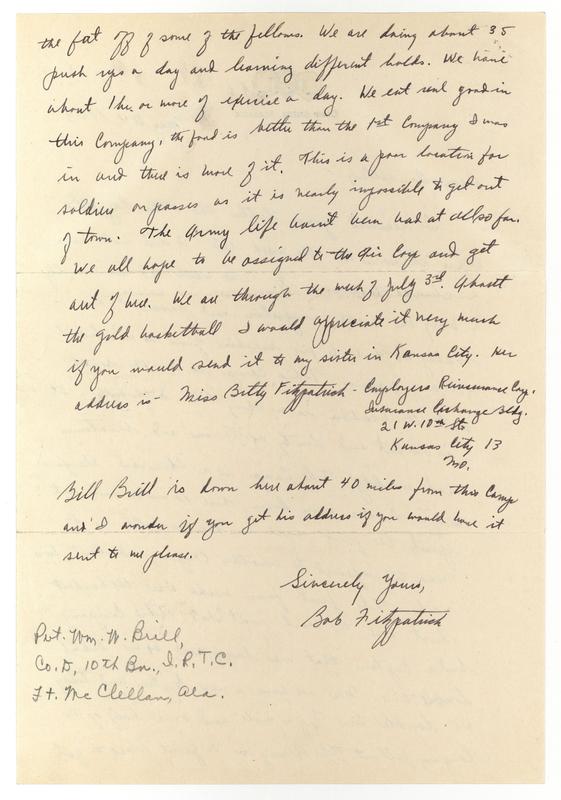 the fat off of some of the fellows. We are doing about 35
push ups a day and learning different holds. We have
about 1 hr or more of exercise a day. We eat real good in
this Company, the food is better than the 1st Company I was
in and there is more of it. This is a poor location for
soldiers on passes as it is nearly impossible to get out
of town. The Army life hasn't been bad at all so far.
We all hope to be assigned to the Air Corp and get
out of here. We are through the week of July 3rd. About
the gold basketball I would appreciate it very much
if you would send it to my sister in Kansas City. Her
address is - Miss Betty Fitzpatrick - Employers Reinsurance Corp.
Insurance Exchange Bldg.
21 W. 10th St
Kansas City 13
Mo.
Bill Brill is down here about 40 miles from this Camp
and I wonder if you get his address if you would have it
sent to me please.
Sincerely Yours,
Bob Fitzpatrick
Pvt. Wm. W. Brill,
Co. D, 10th Bn., I.R.T.C.
Ft. McClellan, Ala.